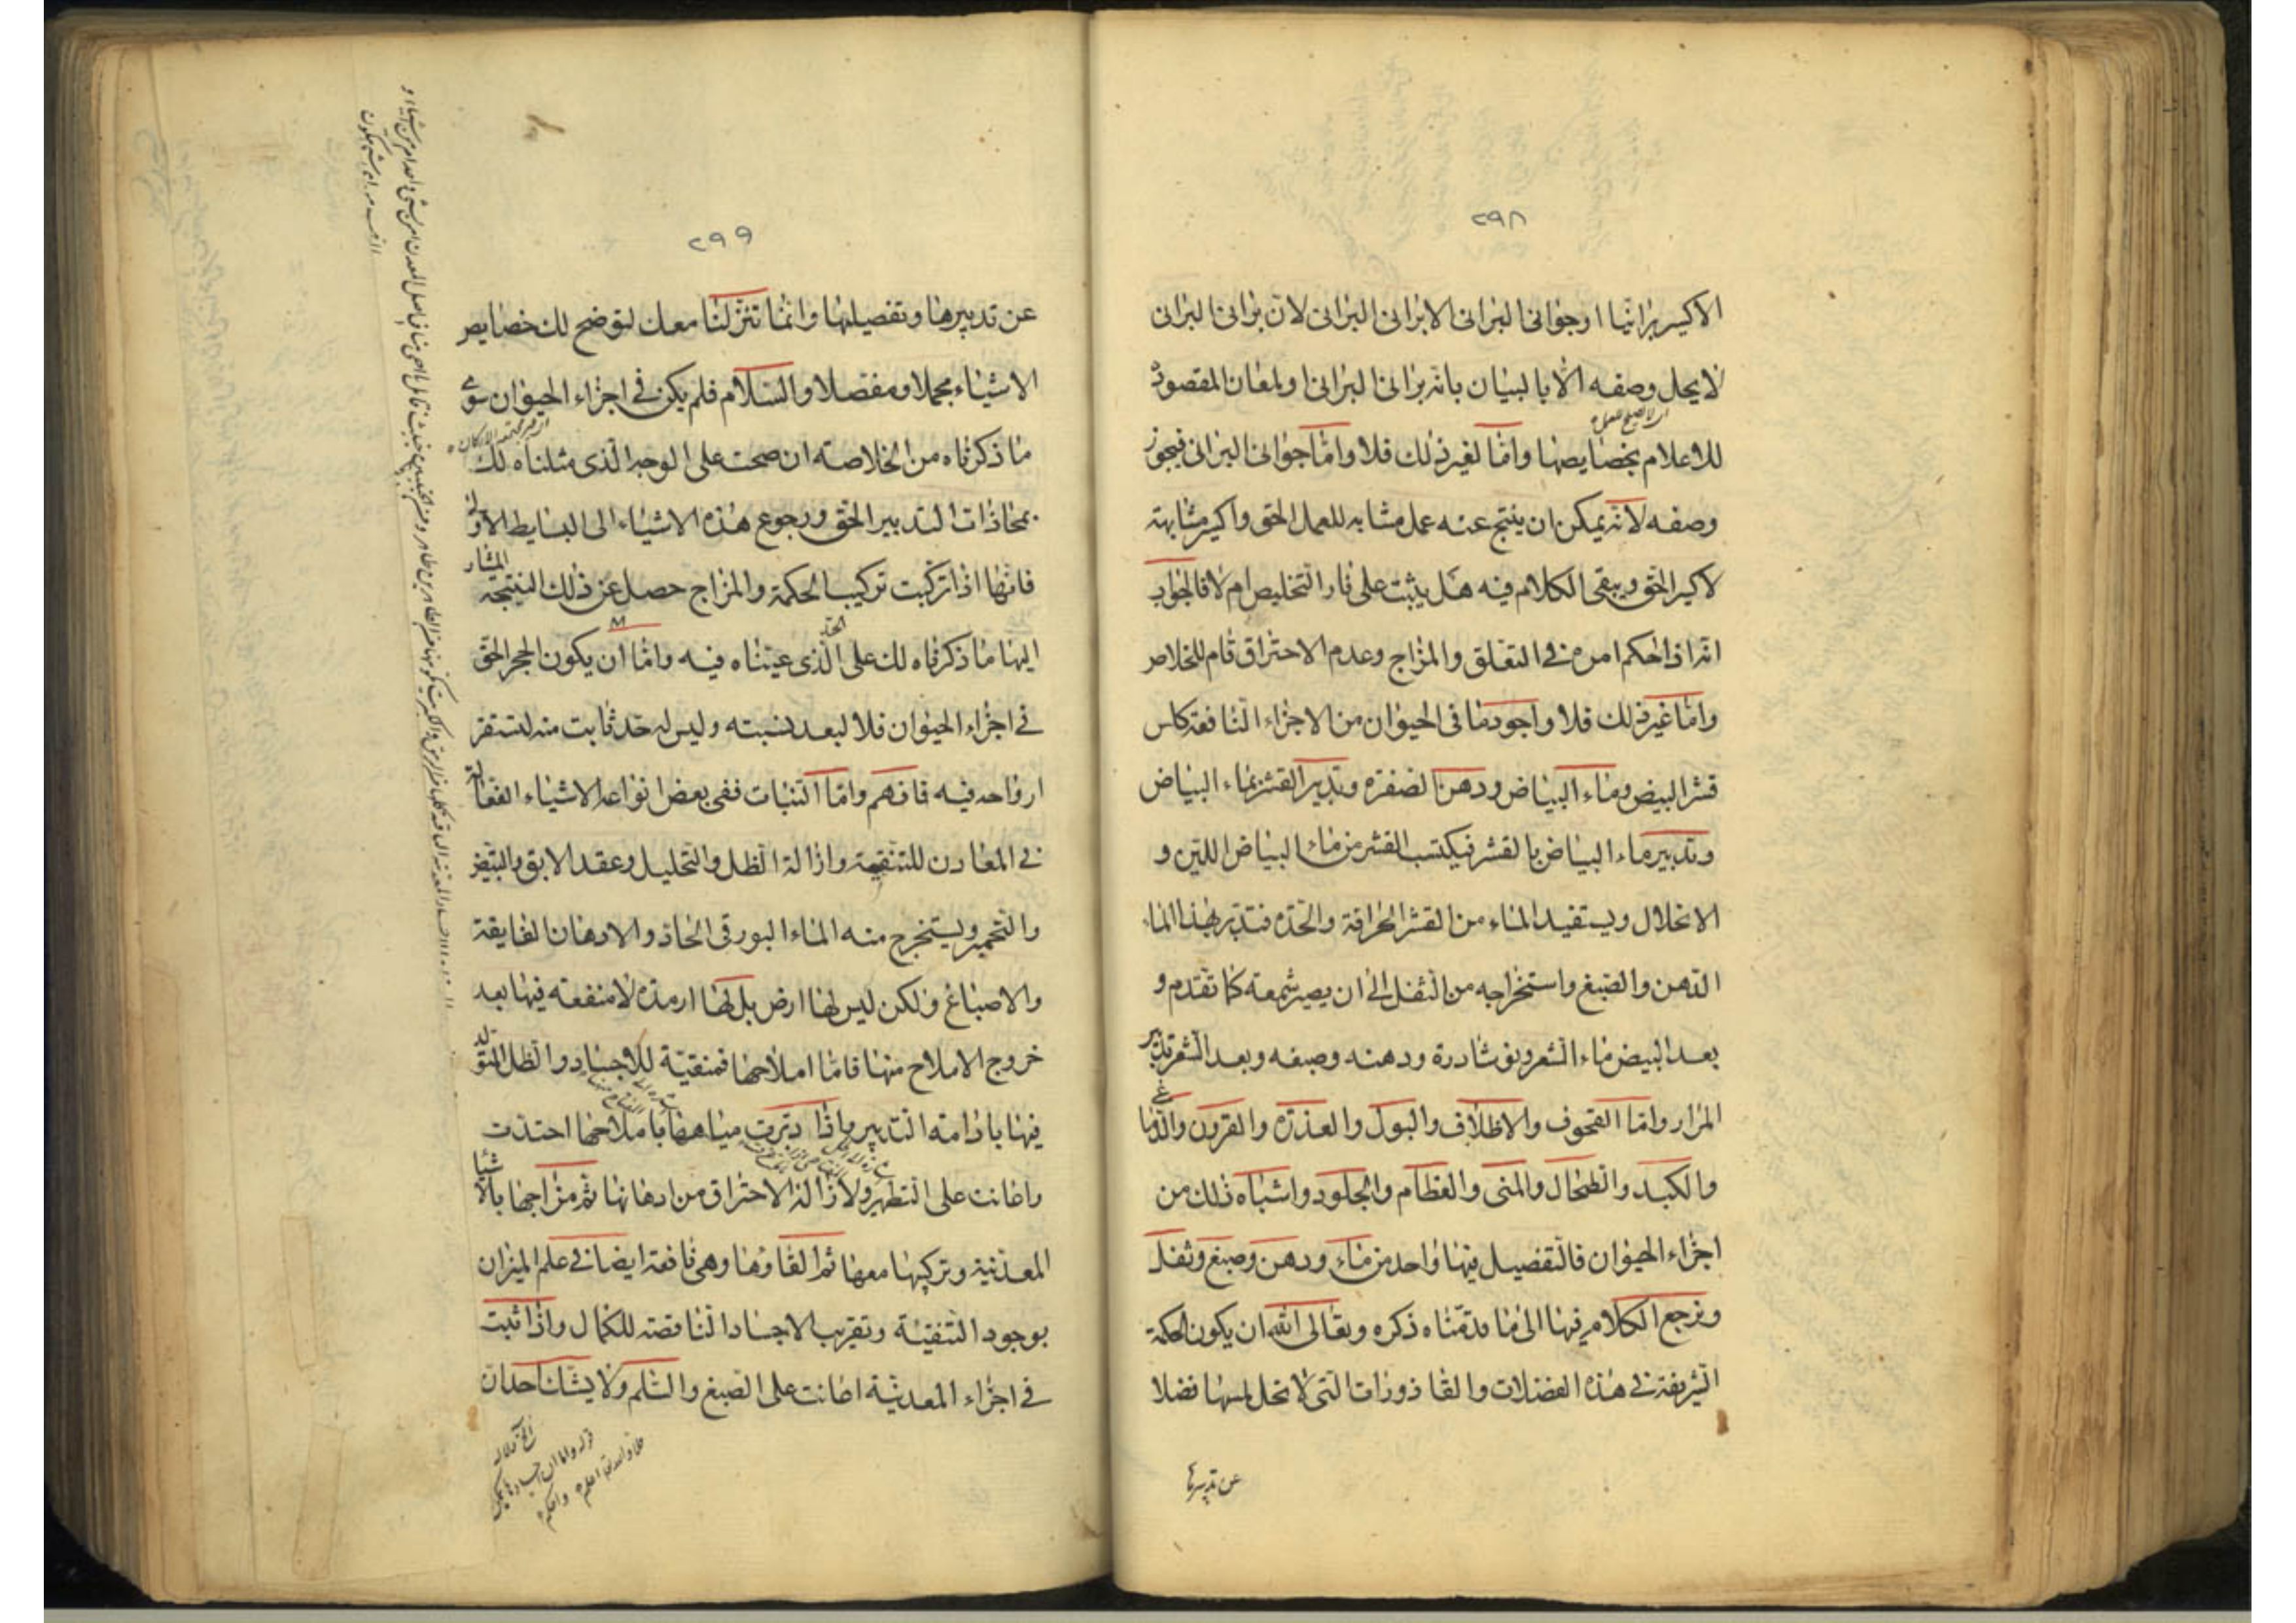 ٢٩٨
الاكسير برانيا او جوانى البرانى الا برانى البرانى لان برانى البرانى
لا يحل وصفه الا بالبيان بانه برانى البرانى او لمعان المقصود
للاعلام بخصايصها واما لغير ذلك فلا واما جوانى البرانى فيجوز
وصفه لانه يمكن ان ينتج عنه عمل مشابه للعمل الحق واكسير مشابهته
لاكسير الحق ويبقى الكلام فيه هل يثبت على نار التخليص ام لا فالجواب
انه اذا حكم امره فى التعلق والمزاج وعدم الاحتراق قام للخلاص
واما غير ذلك فلا واجود ما فى الحيوان من الاجزاء النافعة كلس
قشر البيض وماء البياض ودهن الصفرة وتدبير القشر بماء البياض
وتدبير ماء البياض بالقشر فيكتسب القشر من ماء البياض اللين و
الانحلال ويستفيد الماء من القشر الحرافة والحدة فتدبر بهذا الماء
الدهن والصبغ واستخراجه من الثفل الى ان يصير شمعة كما تقدم و
بعد البيض ماء الشعر ونوشادره ودهنه وصبغه وبعد الشعر تدبير
المرار واما القحوف والاظلاف والبول والعذرة والقرون والدماغ
والكبد والطحال والمنى والعظام والجلود واشباه ذلك من
اجزاء الحيوان فالتفصيل فيها واحد من ماء ودهن وصبغ وثفل
ونرجع الكلام فيها الى ما قدمناه ذكره وتعالى الله ان يكون الحكمة
الشريفة فى هذه الفضلات والقاذورات التى لا تحل لمسها فضلا
عن تدبيرها
٢٩٩
عن تدبيرها وتفصيلها وانما تنزلنا معك لتوضح لك خصايص
الاشياء مجملا ومفصلا والسلام فلم يكن فى اجزاء الحيوان سوى
ما ذكرناه من الخلاصة ان صحت على الوجه الذى مثلناه لك
بمحاذات التدبير الحق ورجوع هذه الاشياء الى البسايط الاولى
فانها اذا تركبت تركيب الحكمة والمزاج حصل عن ذلك النتيجة المشار
اليها ما ذكرناه لك على الحد الذى عيناه فيه واما ان يكون الحجر الحق
فى اجزاء الحيوان فلا لبعد نسبته وليس له حد ثابت منه لتستقر
ارواحه فيه فافهم واما النبات ففى بعض انواعه الاشياء الفعالة
فى المعادن للتنقية وازالة الظل والتحليل وعقد الابق والتبييض
والتحمير ويستخرج منه الماء البورقى الحاذ والادهان الفايقة
والاصباغ ولكن ليس لها ارض بل لها ارمدة لا منفعة فيها بعد
خروج الاملاح منها فاما املاحها فمنقية للاجساد والظل المتولد
فيها بادامة التدبير واذا دبرت مياهها باملاحها احتدت
واعانت على التطهير ولازالة الاحتراق من ادهانها ثم مزاجها بالاشيا
المعدنية وتركيبها معها ثم القاوها وهى نافعة ايضا فى علم الميزان
بوجود التنقية وتقريب الاجساد الناقصة للكمال واذا ثبت
فى اجزاء المعدنية اعانت على الصبغ والسلم ولا يشك احد ان